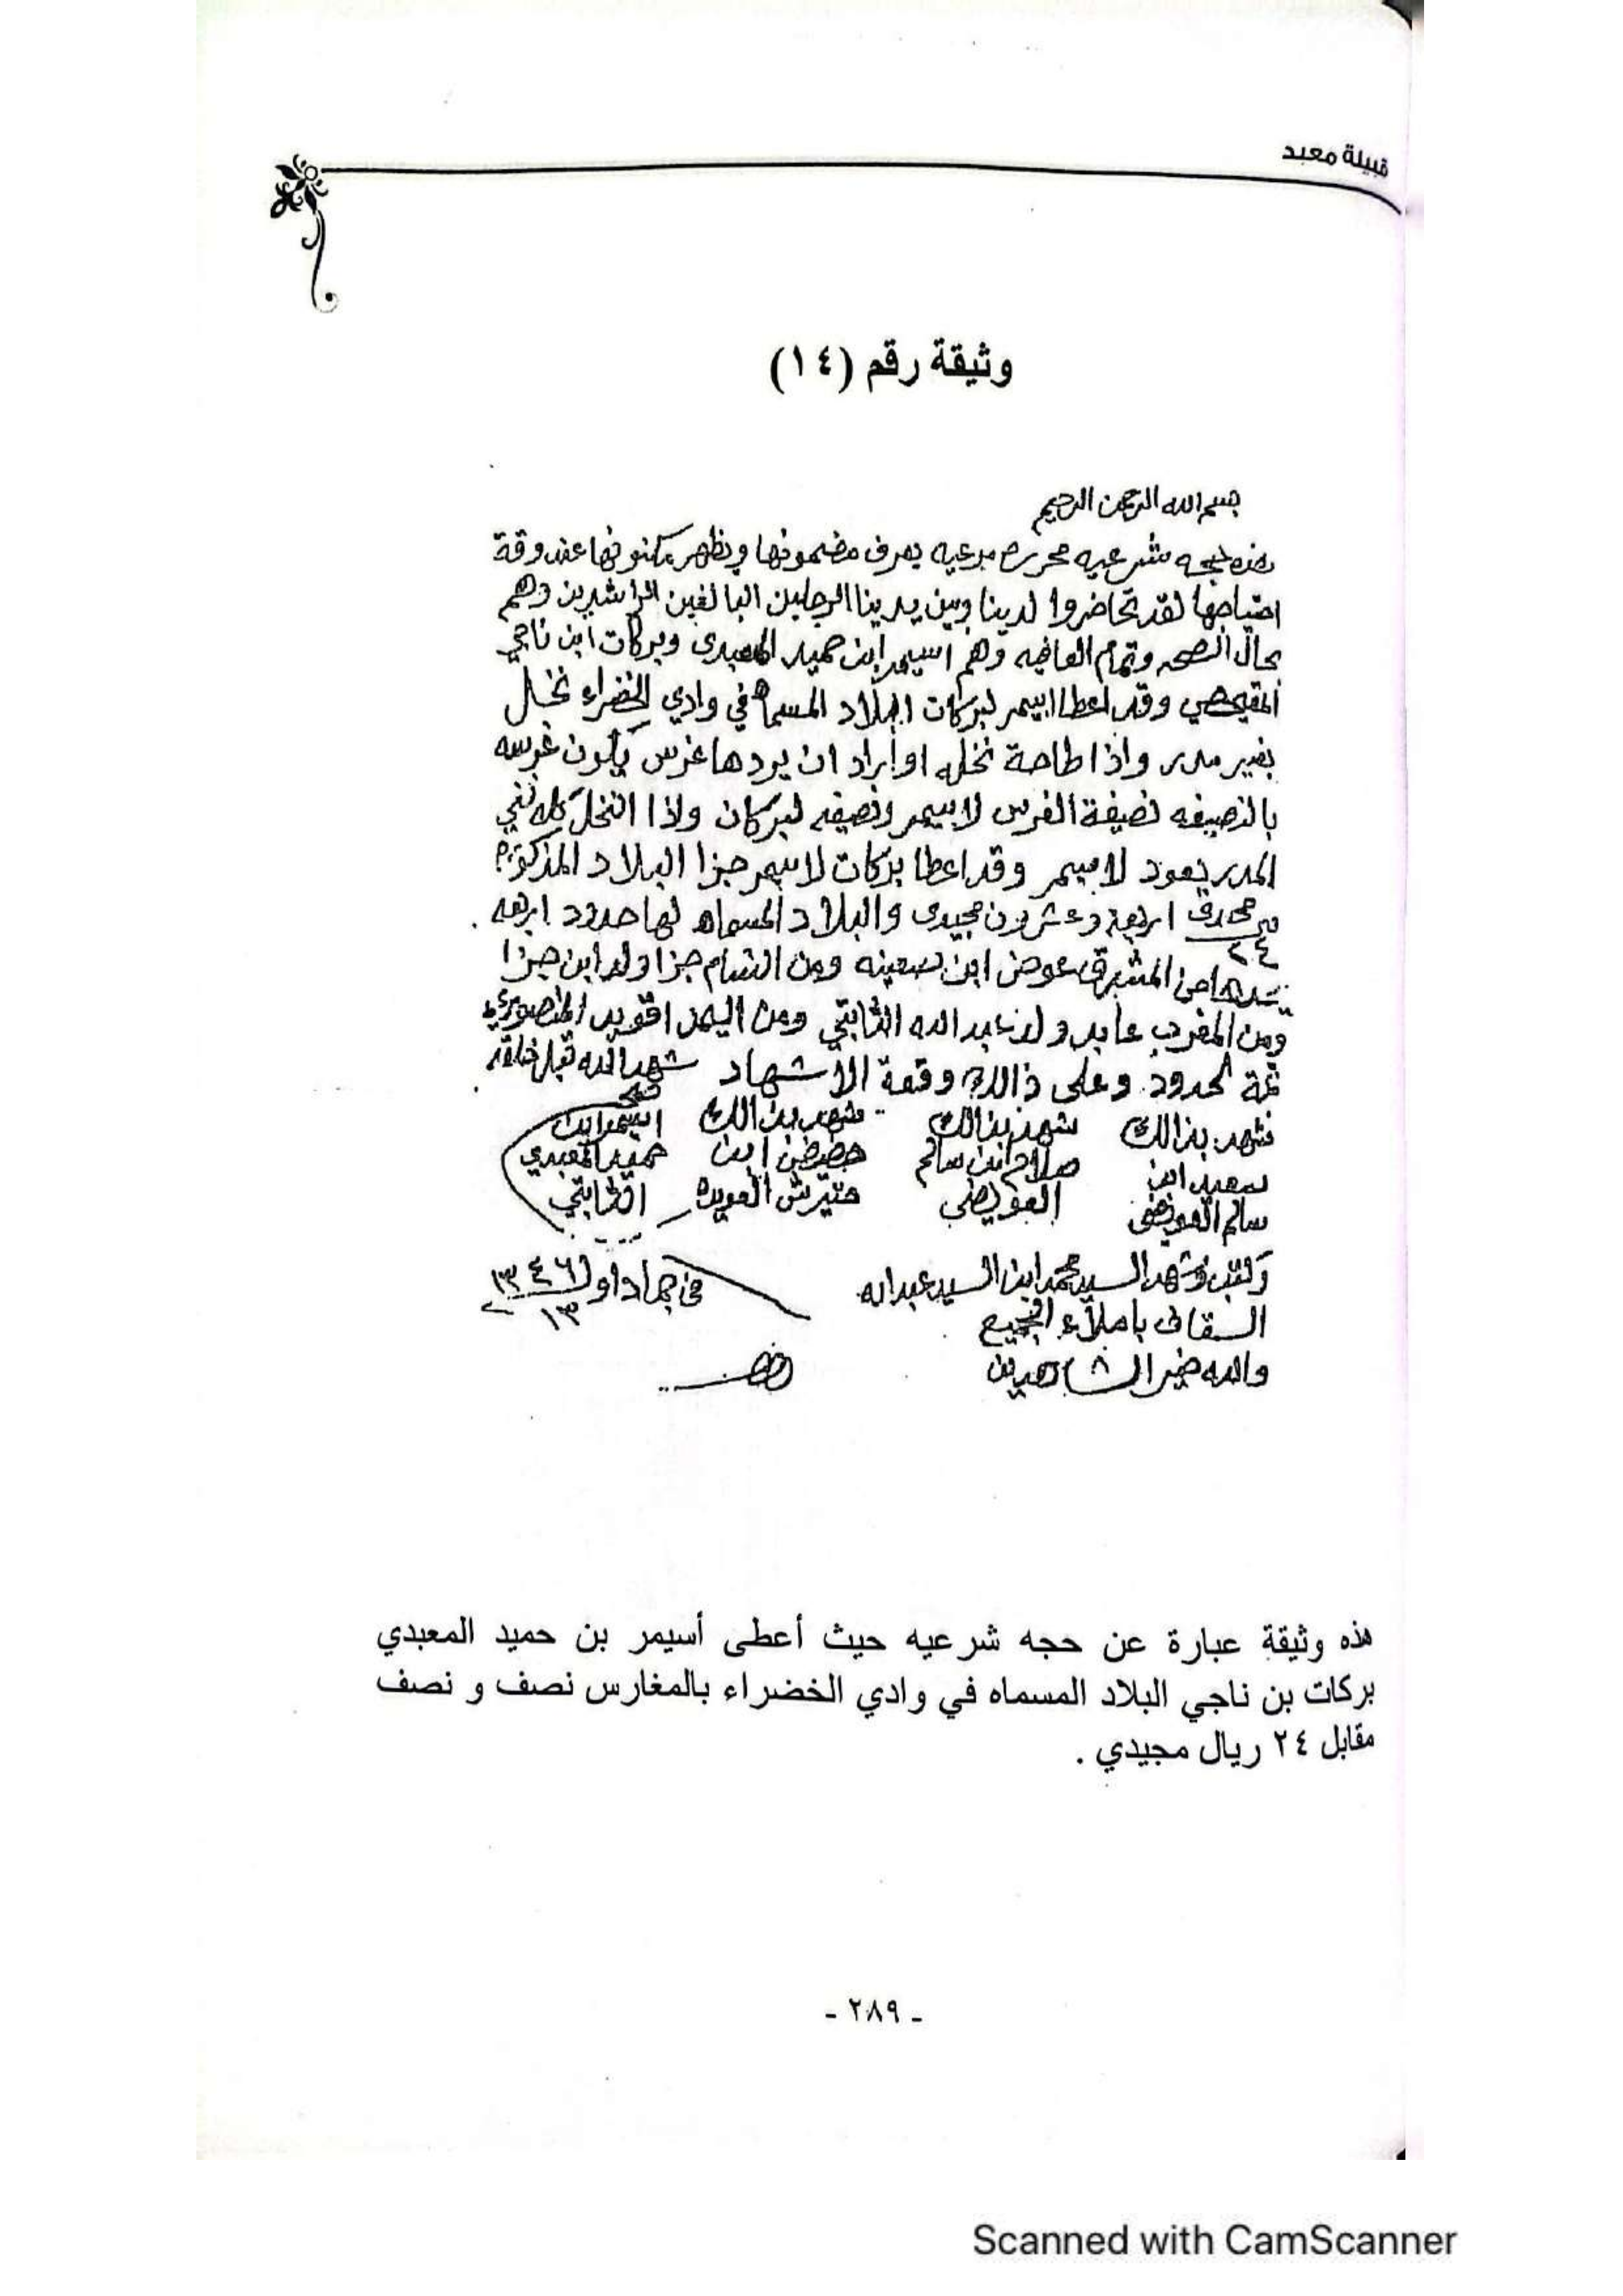 قبيلة معبد
وثيقة رقم (١٤)
بسم الله الرحمن الرحيم
هذه حجه شرعيه محرره مرعيه يعرف مضمونها ويظهر مكنونها عند وقة
احتياجها لقد تحاضروا لدينا وبين يدينا الرجلين البالغين الراشدين وهم
بحال الصحه وتمام العافيه وهم اسيمر ابن حميد المعبدي وبركات ابن ناجي
وقد اعطا اسيمر لبركات البلاد المسماه في وادي الخضراء نخل
بغير مدر واذا طاحة نخله او اراد ان يردها غرس يكون غرسه
بالنصيفه نصيفة الغرس لاسيمر ونصيفه لبركات واذا النخل كله فني
المدر يعود لاسيمر وقد اعطا بركات لاسيمر جزا البلاد المذكوره
اربعة وعشرون مجيدي والبلاد المسماه لها حدود اربعه
٢٤
يحدها من المشرق عوض ابن ومن الشام جزا ولد ابن جزا
ومن المغرب عابد ولد عبدالله الثابتي ومن اليمن المنصوري
تمة الحدود وعلى ذالك وقعة الاشهاد شهد الله قبل خلقه
فشهد بذالك شهد بذالك شهد بذالك صح
سعيد ابن سلام ابن سالم ابن اسيمر ابن
سالم العويضي العويضي حميد المعبدي
الثابتي
وكتب وشهد السيد محمد ابن السيد عبدالله في جماد اول ١٣٤٦
السقاف باملاء الجميع ١٣
والله خير الشاهدين
هذه وثيقة عبارة عن حجه شرعيه حيث أعطى أسيمر بن حميد المعبدي
بركات بن ناجي البلاد المسماه في وادي الخضراء بالمغارس نصف و نصف
مقابل ٢٤ ريال مجيدي .
- ٢٨٩ -
Scanned with CamScanner